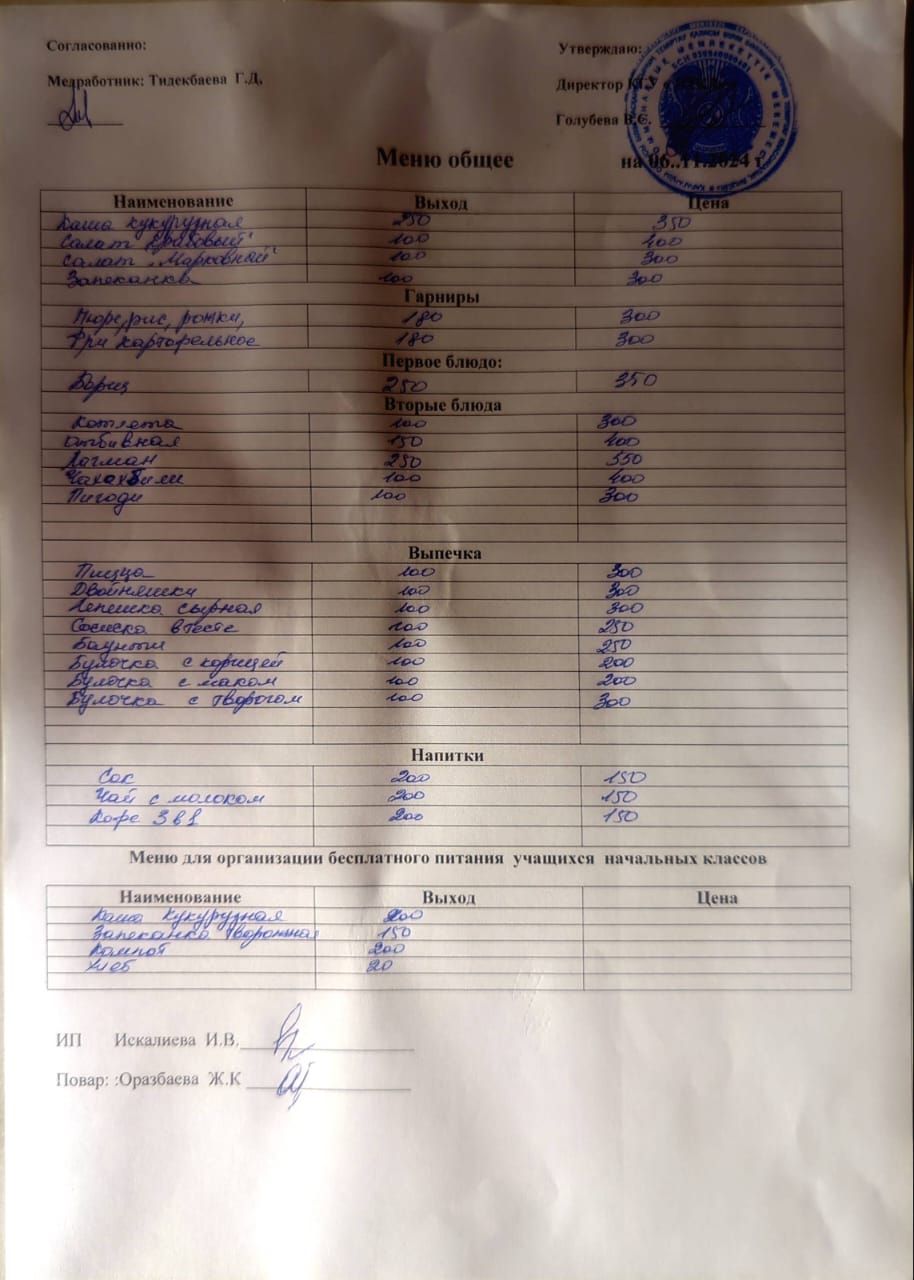 Согласованно:
Утверждаю:
Медработник: Тидекбаева Г.Д,
Директор КГУ
Голубева В.С.
Меню общее на 06..11.2024 г
Наименование Выход Цена
Каша кукурузная 250 350
Салат "Крабовый" 100 400
Салат "Марковный" 100 300
Запеканка 100 300
Гарниры
Пюре,рис, рожки, 180 300
Фри картофельное 180 300
Первое блюдо:
Борщ 250 350
Вторые блюда
Котлета 100 300
отбивная 150 400
Лагман 250 550
Чахахбили 100 400
Пигоди 100 300
Выпечка
Пицца 100 300
Двойняшки 100 300
Лепешка сырная 100 300
Сосиска в тесте 100 250
Баунти 100 250
Булочка с корицей 100 200
Булочка с маком 100 200
Булочка с творогом 100 300
Напитки
Сок 200 150
Чай с молоком 200 150
Кофе 3 в 1 200 150
Меню для организации бесплатного питания учащихся начальных классов
Наименование Выход Цена
Каша кукурузная 200
Запеканка творожная 150
Компот 200
Хлеб 20
ИП Искалиева И.В.
Повар: :Оразбаева Ж.К